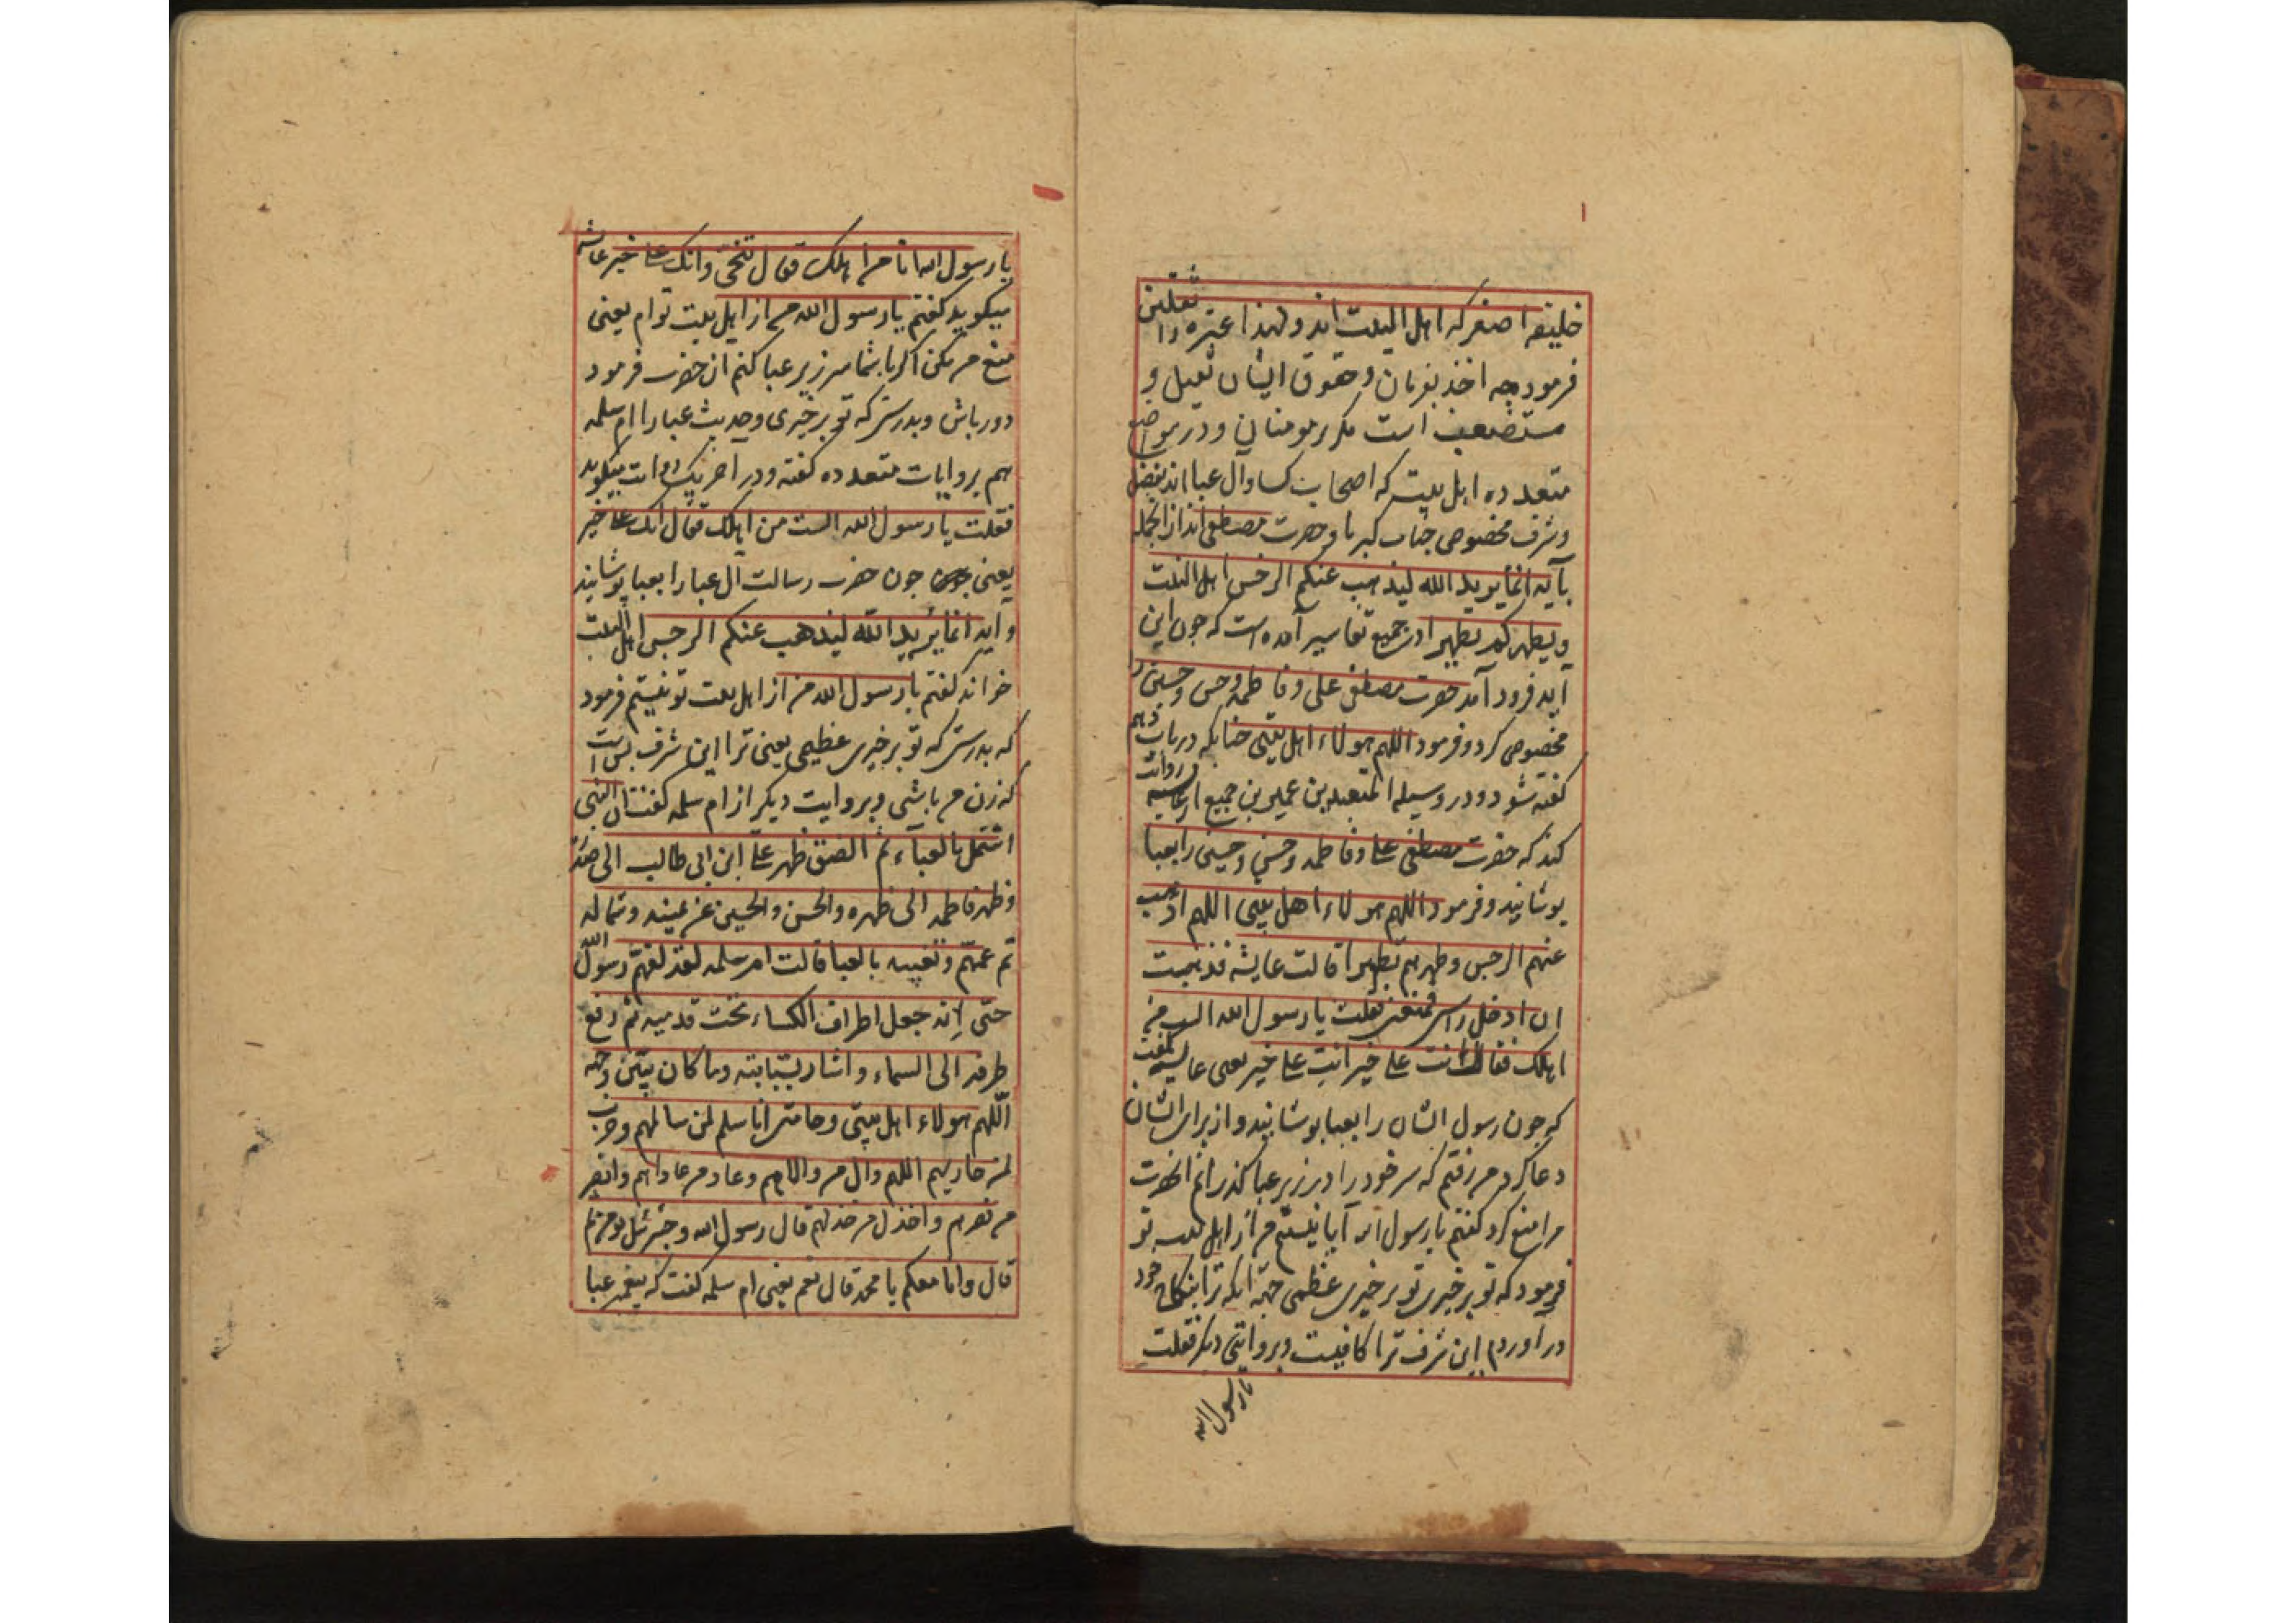 خلیفه اصغر که اهل البیت اند ولهذا عترة را ثقلین
فرمود چه اخذ بفرمان و حقوق ایشان ثقیل و
مستصعب است مکر بر مومنان و در مواضع
متعدده اهل بیت که اصحاب کسا وآل عبا اند بفضل
وشرف مخصوص جناب کبریا و حضرت مصطفی اند از انجمله
بآیه انما یرید الله لیذهب عنکم الرجس اهل البیت
ویطهرکم تطهیرا در جمیع تفاسیر آمده است که چون این
ایه فرود آمد حضرت مصطفی علی و فاطمه وحسن وحسین را
مخصوص کرد و فرمود اللهم هولاء اهل بیتی چنانکه در باب دهم
کفته شود و در وسیلة المتعبدین عمیر بن جمیع از عایشه روایت
کند که حضرت مصطفی علی و فاطمه و حسن و حسین را بعبا
پوشانید و فرمود اللهم هولاء اهل بیتی اللهم اذهب
عنهم الرجس وطهرهم تطهیرا قالت عایشه فذهبت
ان ادخل راسی فمنعنی فقلت یا رسول الله الست من
اهلک فقال انت علی خیر انت علی خیر یعنی عایشه گفت
که چون رسول ایشان را بعبا پوشانید و از برای ایشان
دعا کرد من رفتم که سر خود را در زیر عبا کذرانم انحضرت
مرا منع کرد کفتم یا رسول الله آیا نیستم من از اهل بیت تو
فرمود که تو بر خیری تو بر خیری عظیمی جهة آنکه ترا بنکاح خود
در اوردم این شرف ترا کافیست و بروایتی دیکر فقلت
یا رسول الله
یا رسول الله انا من اهلک فقال تنحی وانک علی خیر عایشه
میکوید کفتم یا رسول الله من از اهل بیت توام یعنی
منع من مکن اکر با شما سر زیر عبا کنم ان حضرت فرمود
دور باش و بدرستی که تو بر خیری وحدیث عبا را ام سلمه
هم بروایات متعدده کفته و در اخر یک روایت میکوید
فقلت یا رسول الله الست من اهلک فقال انک علی خیر
یعنی چون حضرت رسالت ال عبا را بعبا پوشانید
و ایه انما یرید الله لیذهب عنکم الرجس اهل البیت
خواند کفتم یا رسول الله من از اهل بیت تو نیستم فرمود
که بدرستی که تو بر خیری عظیمی یعنی ترا این شرف بس است
که زن من باشی و بروایت دیکر از ام سلمه کفت ان النبی
اشتمل بالعباء ثم الصق ظهر علی ابن ابی طالب الی صدره
وظهر فاطمه الی ظهره والحسن والحسین عن یمینه وشماله
ثم عمهم ونفسه بالعبا قالت ام سلمه لقد لفهم رسول الله
حتی انه جعل اطراف الکساء تحت قدمیه ثم رفع
طرفه الی السماء واشار بسبابته وما کان بیتی وحیه
اللهم هولاء اهل بیتی وحامتی انا سلم لمن سالمهم وحرب
لمن حاربهم اللهم وال من والاهم وعاد من عاداهم وانصر
من نصرهم واخذل من خذلهم قال رسول الله وجبرئیل یومن
قال وانا معکم یا محمد قال نعم یعنی ام سلمه کفت که پیغمبر عبا